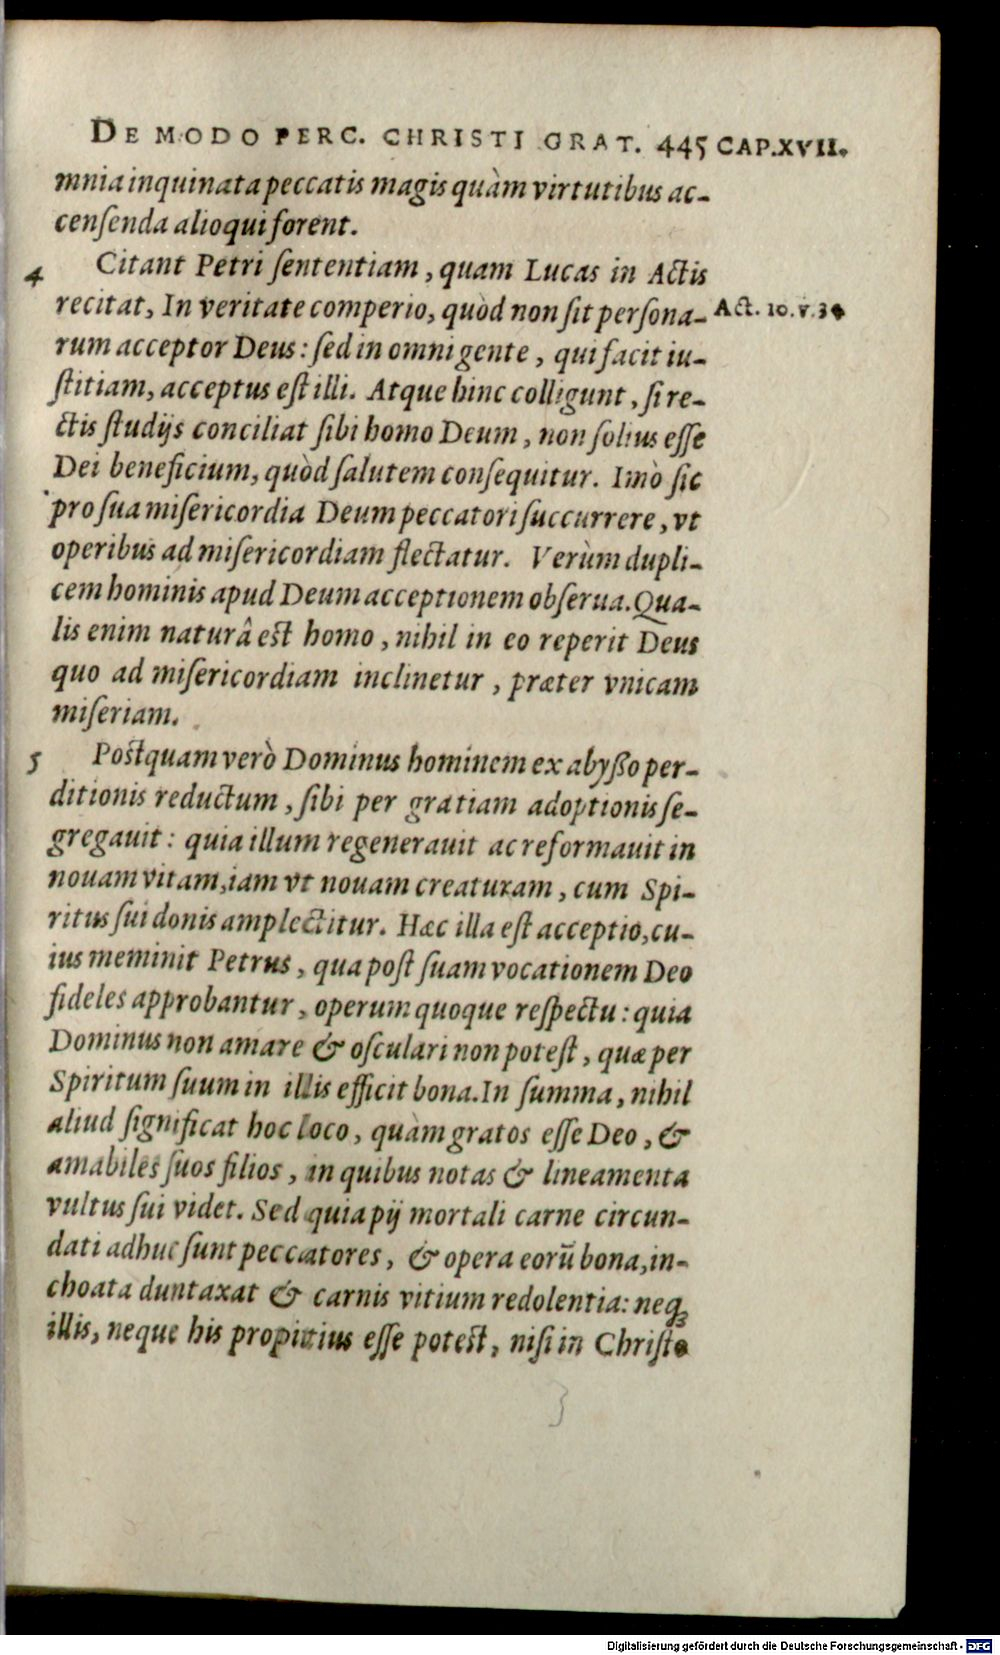 DE MODO PERC. CHRISTI GRAT. 445 CAP.XVII.
mnia inquinata peccatis magis quàm virtutibus ac-
censenda alioqui forent.
4 Citant Petri sententiam, quam Lucas in Actis
recitat, In veritate comperio, quòd non sit persona- Act. 10. v. 34
rum acceptor Deus: sed in omni gente, qui facit iu-
stitiam, acceptus est illi. Atque hinc colligunt, si re-
ctis studijs conciliat sibi homo Deum, non solius esse
Dei beneficium, quòd salutem consequitur. Imò sic
pro sua misericordia Deum peccatori succurrere, vt
operibus ad misericordiam flectatur. Verùm dupli-
cem hominis apud Deum acceptionem obserua. Qua-
lis enim naturâ est homo, nihil in eo reperit Deus
quo ad misericordiam inclinetur, præter vnicam
miseriam.
5 Postquam verò Dominus hominem ex abysso per-
ditionis reductum, sibi per gratiam adoptionis se-
gregauit: quia illum regenerauit ac reformauit in
nouam vitam, iam vt nouam creaturam, cum Spi-
ritus sui donis amplectitur. Hæc illa est acceptio, cu-
ius meminit Petrus, qua post suam vocationem Deo
fideles approbantur, operum quoque respectu: quia
Dominus non amare & osculari non potest, quæ per
Spiritum suum in illis efficit bona. In summa, nihil
aliud significat hoc loco, quàm gratos esse Deo, &
amabiles suos filios, in quibus notas & lineamenta
vultus sui videt. Sed quia pij mortali carne circun-
dati adhuc sunt peccatores, & opera eorū bona, in-
choata duntaxat & carnis vitium redolentia: neq;
illis, neque his propitius esse potest, nisi in Christo
Digitalisierung gefördert durch die Deutsche Forschungsgemeinschaft - DFG